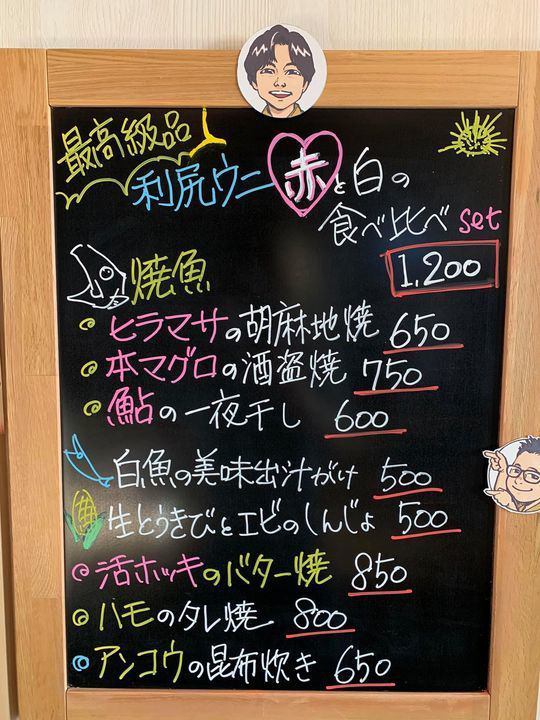 最高級品
利尻ウニ 赤と白の
食べ比べ set
1,200
焼魚
ヒラマサの胡麻地焼 650
本マグロの酒盗焼 750
鮎の一夜干し 600
白魚の美味出汁がけ 500
生とうきびとエビのしんじょ 500
活ホッキのバター焼 850
ハモのタレ焼 800
アンコウの昆布炊き 650